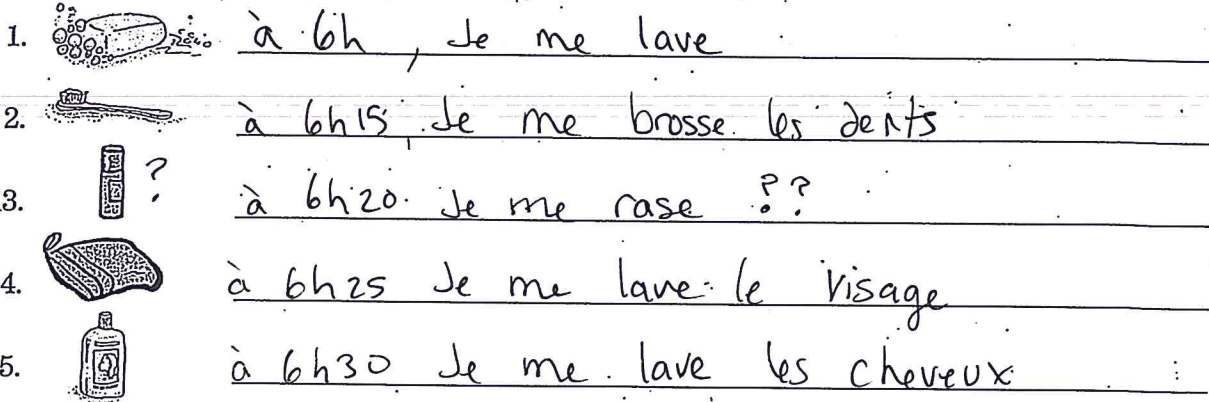 1. à 6h, Je me lave
2. à 6h15, Je me brosse les dents
3. ? à 6h20. Je me rase ??
4. à 6h25 Je me lave le visage
5. à 6h30 Je me lave les cheveux